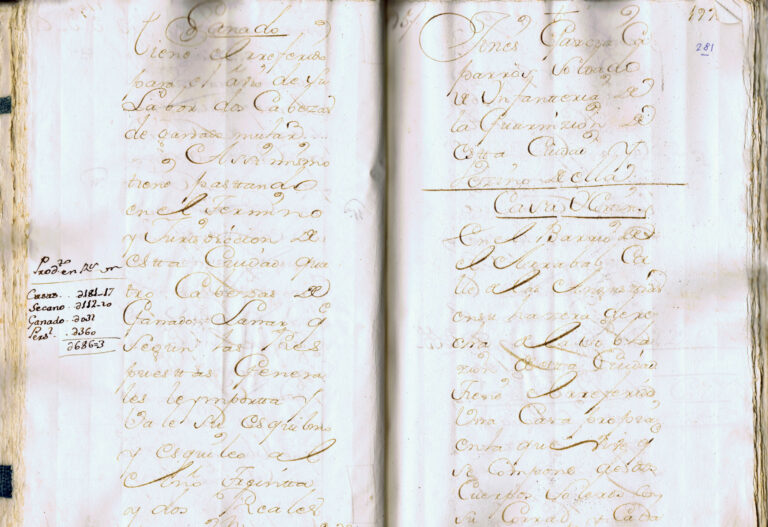 Ganado
tiene el rreferido
para el año de su
Labor dos Cabezas
de ganado mular
Assi mismo
tiene pastando
en el Termino
y Jurisdiccion de
estta Ciudad qua
tro Cabezas de
Ganado Lanar q
segun las Res
puesttas Genera
les le importa y
Vale su esquilmo
y esquileo al
Año Treintta
y dos Reales
Prodzen Rs m
Casas . . 181-17
Secano . 112-20
Ganado . 032
Persl . 360
686-3
191
281
Gines Garcia Ca
parros Soldado
de Infanteria de
la Guarnizion de
estta Ciudad y
Vezino de ella
Casa
En el Barrio del
Arrabal Ca
lle de
en su parte
cha de la
de estta Ciudad
Tiene el rreferido
Una Casa propria
en la que Vive q
se Compone de dos
Cuerpos Solería con
su Corral